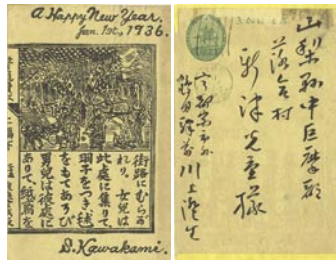 A Happy New Year.
Jan. 1st, 1936.
街路にむらが
れり、女児は
此處に集りて
羽子をつき毬
をもてあそび
男児は彼處に
ありて紙鳶を
S. Kawakami.
山梨縣中巨摩郡
落合村
新津光重様
宇都宮市外
鶴田驛前
川上澄生